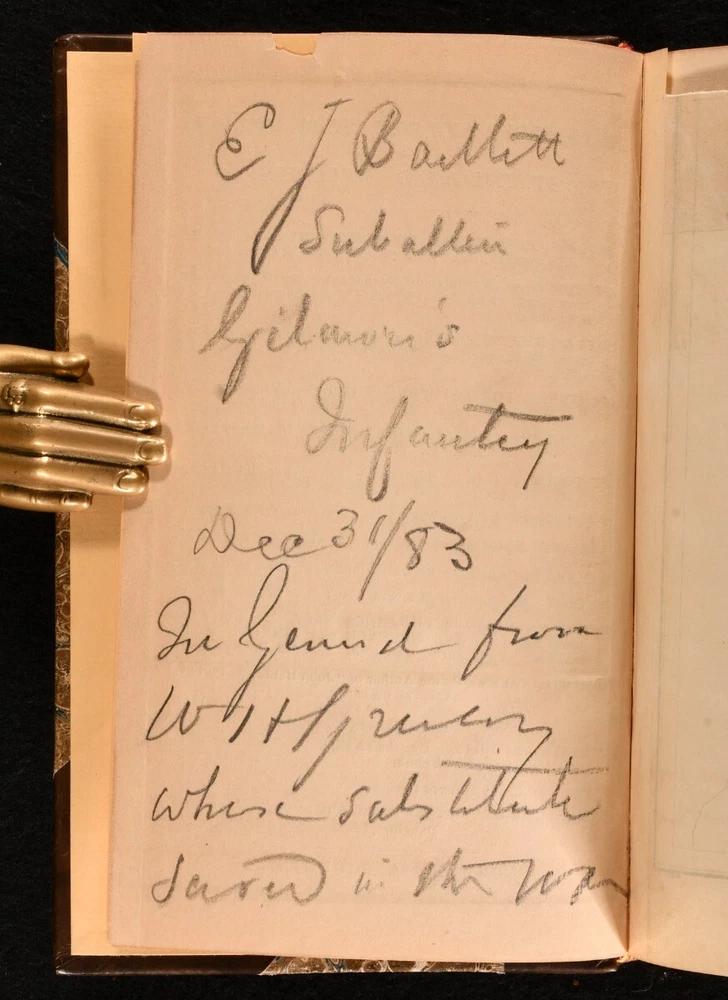 E J Bartlett
Subaltern
Gilmore's
Infantry
Dec 31/83
In General from
W H
whose substitute
served in the war